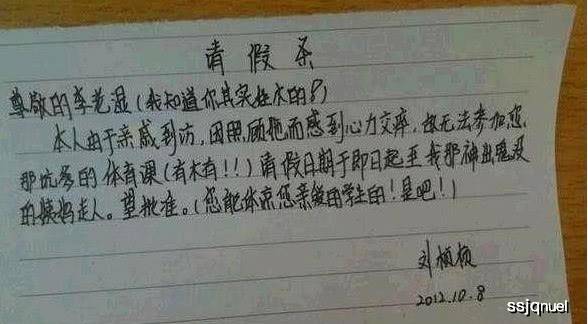 请假条
尊敬的李老湿(我知道你其实姓水的!)
本人由于亲戚到访,因照顾她而感到心力交瘁,故无法参加您
那坑爹的体育课(有木有!!)请假日期于即日起至我那神出鬼没
的姨妈走人。望批准。(您能体谅您亲爱的学生的!是吧!)
刘桢桢
2012.10.8
ssjqnuel